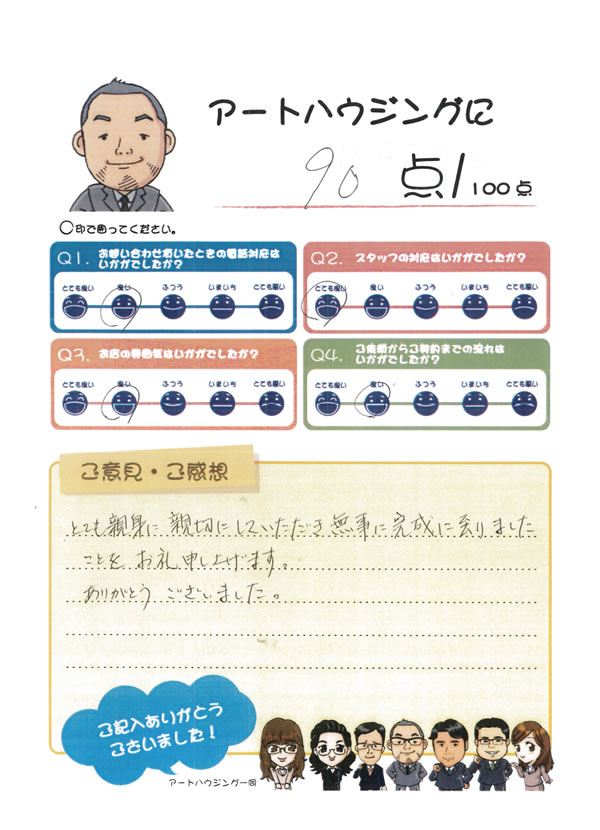 アートハウジングに
90 点/100点
○印で囲ってください。
Q1. お問い合わせ頂いたときの電話対応は
いかがでしたか?
とても良い 良い ふつう いまいち とても悪い
Q2. スタッフの対応はいかがでしたか?
とても良い 良い ふつう いまいち とても悪い
Q3. お店の雰囲気はいかがでしたか?
とても良い 良い ふつう いまいち とても悪い
Q4. ご依頼からご契約までの流れは
いかがでしたか?
とても良い 良い ふつう いまいち とても悪い
ご意見・ご感想
とても親身に親切にしていただき無事に完成に至りました
ことを お礼申し上げます。
ありがとう ございました。
ご記入ありがとう
ございました!
アートハウジング一同